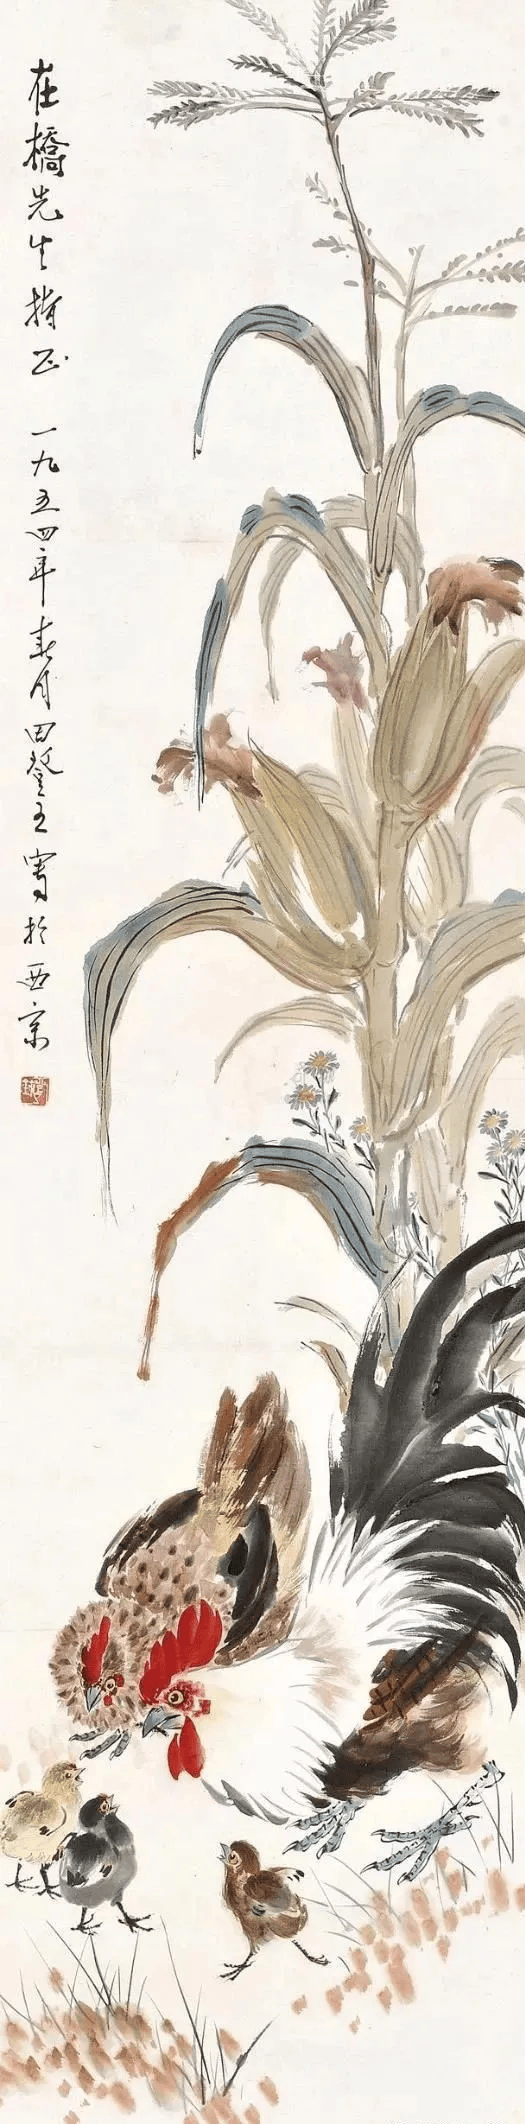 在橋先生指正 一九五四年春月田登五寫於西京